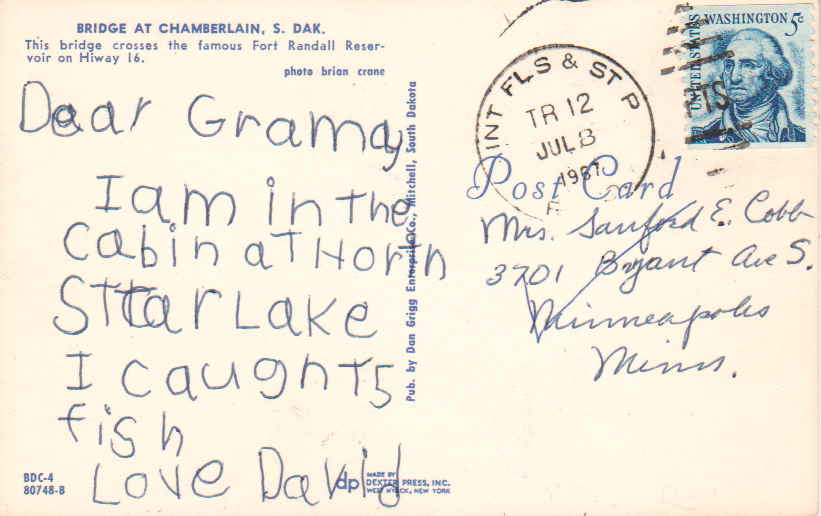 BRIDGE AT CHAMBERLAIN, S. DAK.
This bridge crosses the famous Fort Randall Reser-
voir on Hiway 16.
photo brian crane
Dear Gramay
I am in the
cabin aT Hortn
STtar Lake
I caughT 5
fish
Love David
BDC-4
80748-B
Pub. by Dan Grigg Enterprise Co., Mitchell, South Dakota
dp
MADE BY
DEXTER PRESS, INC.
WEST NYACK, NEW YORK
INT FLS & ST P
TR 12
JUL 3
1967
UNITED STATES
WASHINGTON 5c
Post Card
Mrs. Sanford E. Cobb
3701 Bryant Ave S.
Minneapolis
Minn.